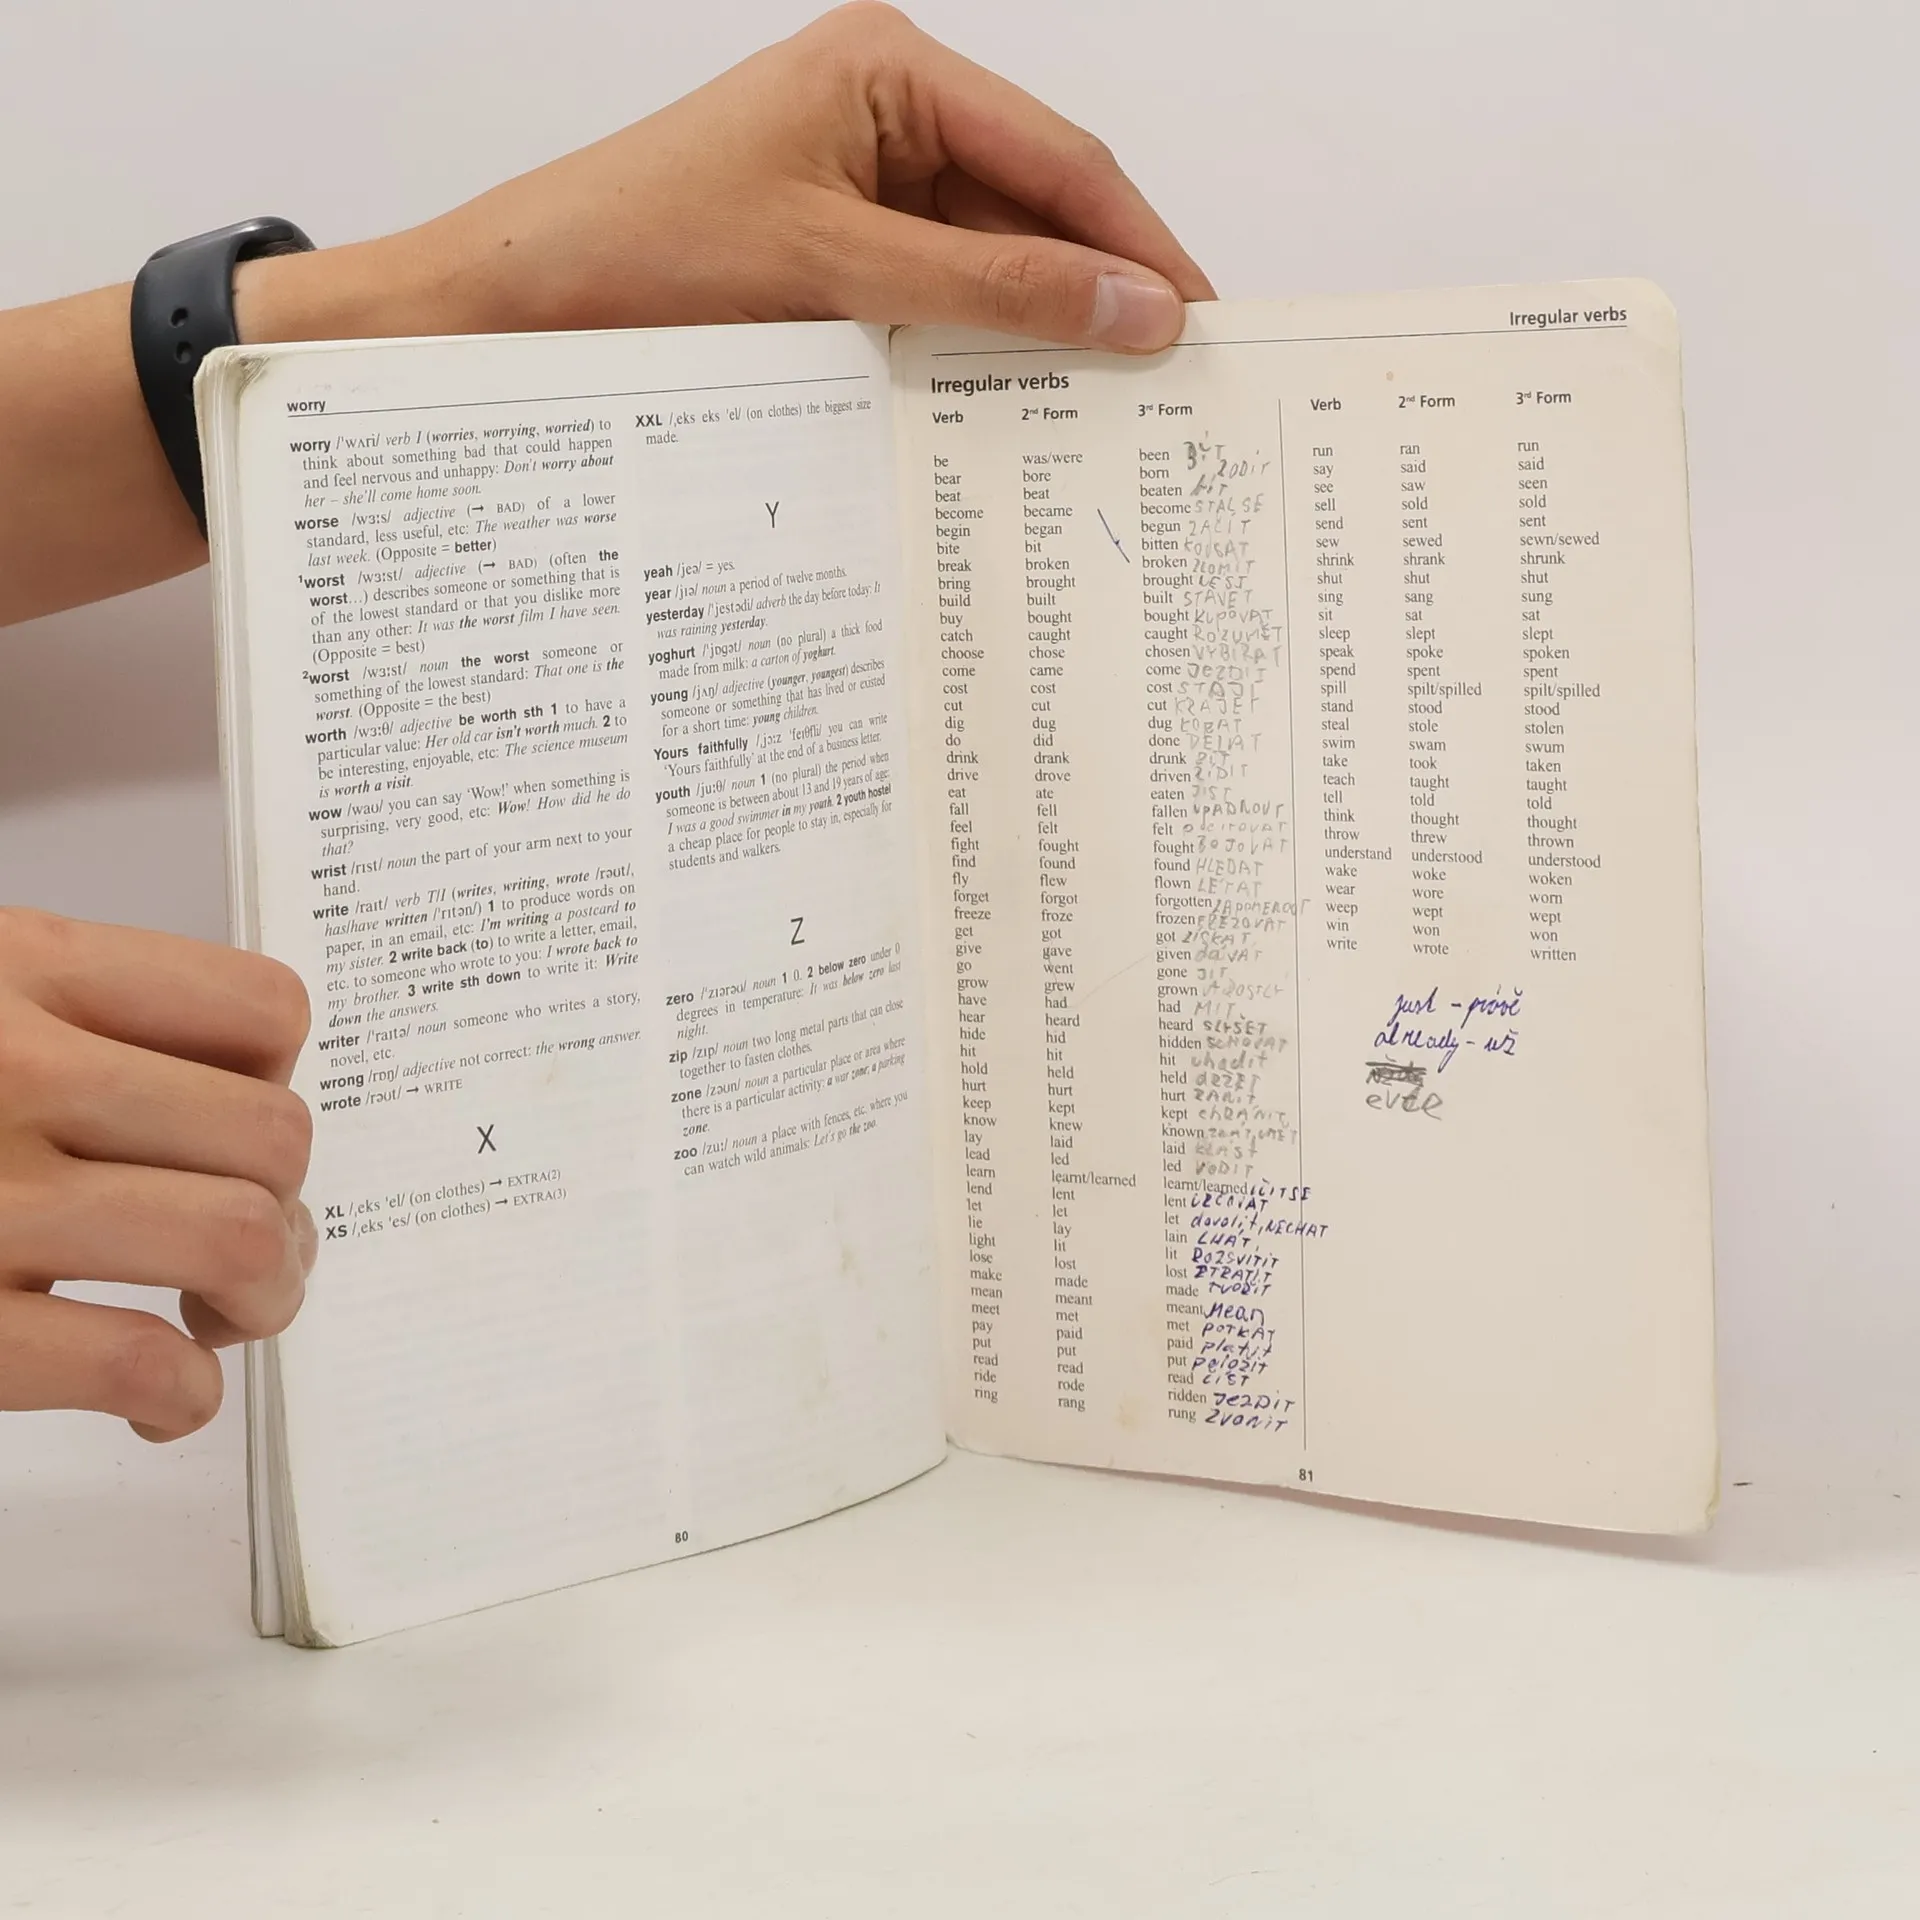 worry
worry /'wʌri/ verb I (worries, worrying, worried) to
think about something bad that could happen
and feel nervous and unhappy: Don't worry about
her – she'll come home soon.
worse /wɜːs/ adjective (→ BAD) of a lower
standard, less useful, etc: The weather was worse
last week. (Opposite = better)
¹worst /wɜːst/ adjective (→ BAD) (often the
worst...) describes someone or something that is
of the lowest standard or that you dislike more
than any other: It was the worst film I have seen.
(Opposite = best)
²worst /wɜːst/ noun the worst someone or
something of the lowest standard: That one is the
worst. (Opposite = the best)
worth /wɜːθ/ adjective be worth sth 1 to have a
particular value: Her old car isn't worth much. 2 to
be interesting, enjoyable, etc: The science museum
is worth a visit.
wow /waʊ/ you can say 'Wow!' when something is
surprising, very good, etc: Wow! How did he do
that?
wrist /rɪst/ noun the part of your arm next to your
hand.
write /raɪt/ verb T/I (writes, writing, wrote /rəʊt/,
has/have written /'rɪtən/) 1 to produce words on
paper, in an email, etc: I'm writing a postcard to
my sister. 2 write back (to) to write a letter, email,
etc. to someone who wrote to you: I wrote back to
my brother. 3 write sth down to write it: Write
down the answers.
writer /'raɪtə/ noun someone who writes a story,
novel, etc.
wrong /rɒŋ/ adjective not correct: the wrong answer.
wrote /rəʊt/ → WRITE
X
XL /ˌeks 'el/ (on clothes) → EXTRA(2)
XS /ˌeks 'es/ (on clothes) → EXTRA(3)
XXL /ˌeks eks 'el/ (on clothes) the biggest size
made.
Y
yeah /jeə/ = yes.
year /jɪə/ noun a period of twelve months.
yesterday /'jestədi/ adverb the day before today: It
was raining yesterday.
yoghurt /'jɒgət/ noun (no plural) a thick food
made from milk: a carton of yoghurt.
young /jʌŋ/ adjective (younger, youngest) describes
someone or something that has lived or existed
for a short time: young children.
Yours faithfully /ˌjɔːz 'feɪθfli/ you can write
'Yours faithfully' at the end of a business letter.
youth /juːθ/ noun 1 (no plural) the period when
someone is between about 13 and 19 years of age:
I was a good swimmer in my youth. 2 youth hostel
a cheap place for people to stay in, especially for
students and walkers.
Z
zero /'zɪərəʊ/ noun 1 0. 2 below zero under 0
degrees in temperature: It was below zero last
night.
zip /zɪp/ noun two long metal parts that can close
together to fasten clothes.
zone /zəʊn/ noun a particular place or area where
there is a particular activity: a war zone; a parking
zone.
zoo /zuː/ noun a place with fences, etc. where you
can watch wild animals: Let's go the zoo.
80
Irregular verbs
Irregular verbs
Verb 2nd Form 3rd Form
be was/were been BÝT
bear bore born
beat beat beaten
become became become STÁL SE
begin began begun ZAČÍT
bite bit bitten KOUSAT
break broken broken ZLOMIT
bring brought brought
build built built STAVĚT
buy bought bought KUPOVAT
catch caught caught ROZUMĚT
choose chose chosen VYBÍRAT
come came come
cost cost cost
cut cut cut KRÁJET
dig dug dug KOPAT
do did done DĚLAT
drink drank drunk PÍT
drive drove driven ŘÍDIT
eat ate eaten JÍST
fall fell fallen UPADNOUT
feel felt felt
fight fought fought BOJOVAT
find found found HLEDAT
fly flew flown LÉTAT
forget forgot forgotten
freeze froze frozen
get got got ZÍSKAT
give gave given dáVAT
go went gone JÍT
grow grew grown
have had had MÍT
hear heard heard
hide hid hidden SCHOVAT
hit hit hit
hold held held
hurt hurt hurt
keep kept kept CHRÁNIT
know knew known
lay laid laid KLÁST
lead led led VODIT
learn learnt/learned learnt/learned
lend lent lent
let let let dovolit, NECHAT
lie lay lain LHÁT
light lit lit ROZSVÍTIT
lose lost lost ZTRATIT
make made made TVOŘIT
mean meant meant MEAN
meet met met POTKAT
pay paid paid platit
put put put položit
read read read ČÍST
ride rode ridden JEZDIT
ring rang rung ZVONIT
Verb 2nd Form 3rd Form
run ran run
say said said
see saw seen
sell sold sold
send sent sent
sew sewed sewn/sewed
shrink shrank shrunk
shut shut shut
sing sang sung
sit sat sat
sleep slept slept
speak spoke spoken
spend spent spent
spill spilt/spilled spilt/spilled
stand stood stood
steal stole stolen
swim swam swum
take took taken
teach taught taught
tell told told
think thought thought
throw threw thrown
understand understood understood
wake woke woken
wear wore worn
weep wept wept
win won won
write wrote written
just - právě
already - už
81